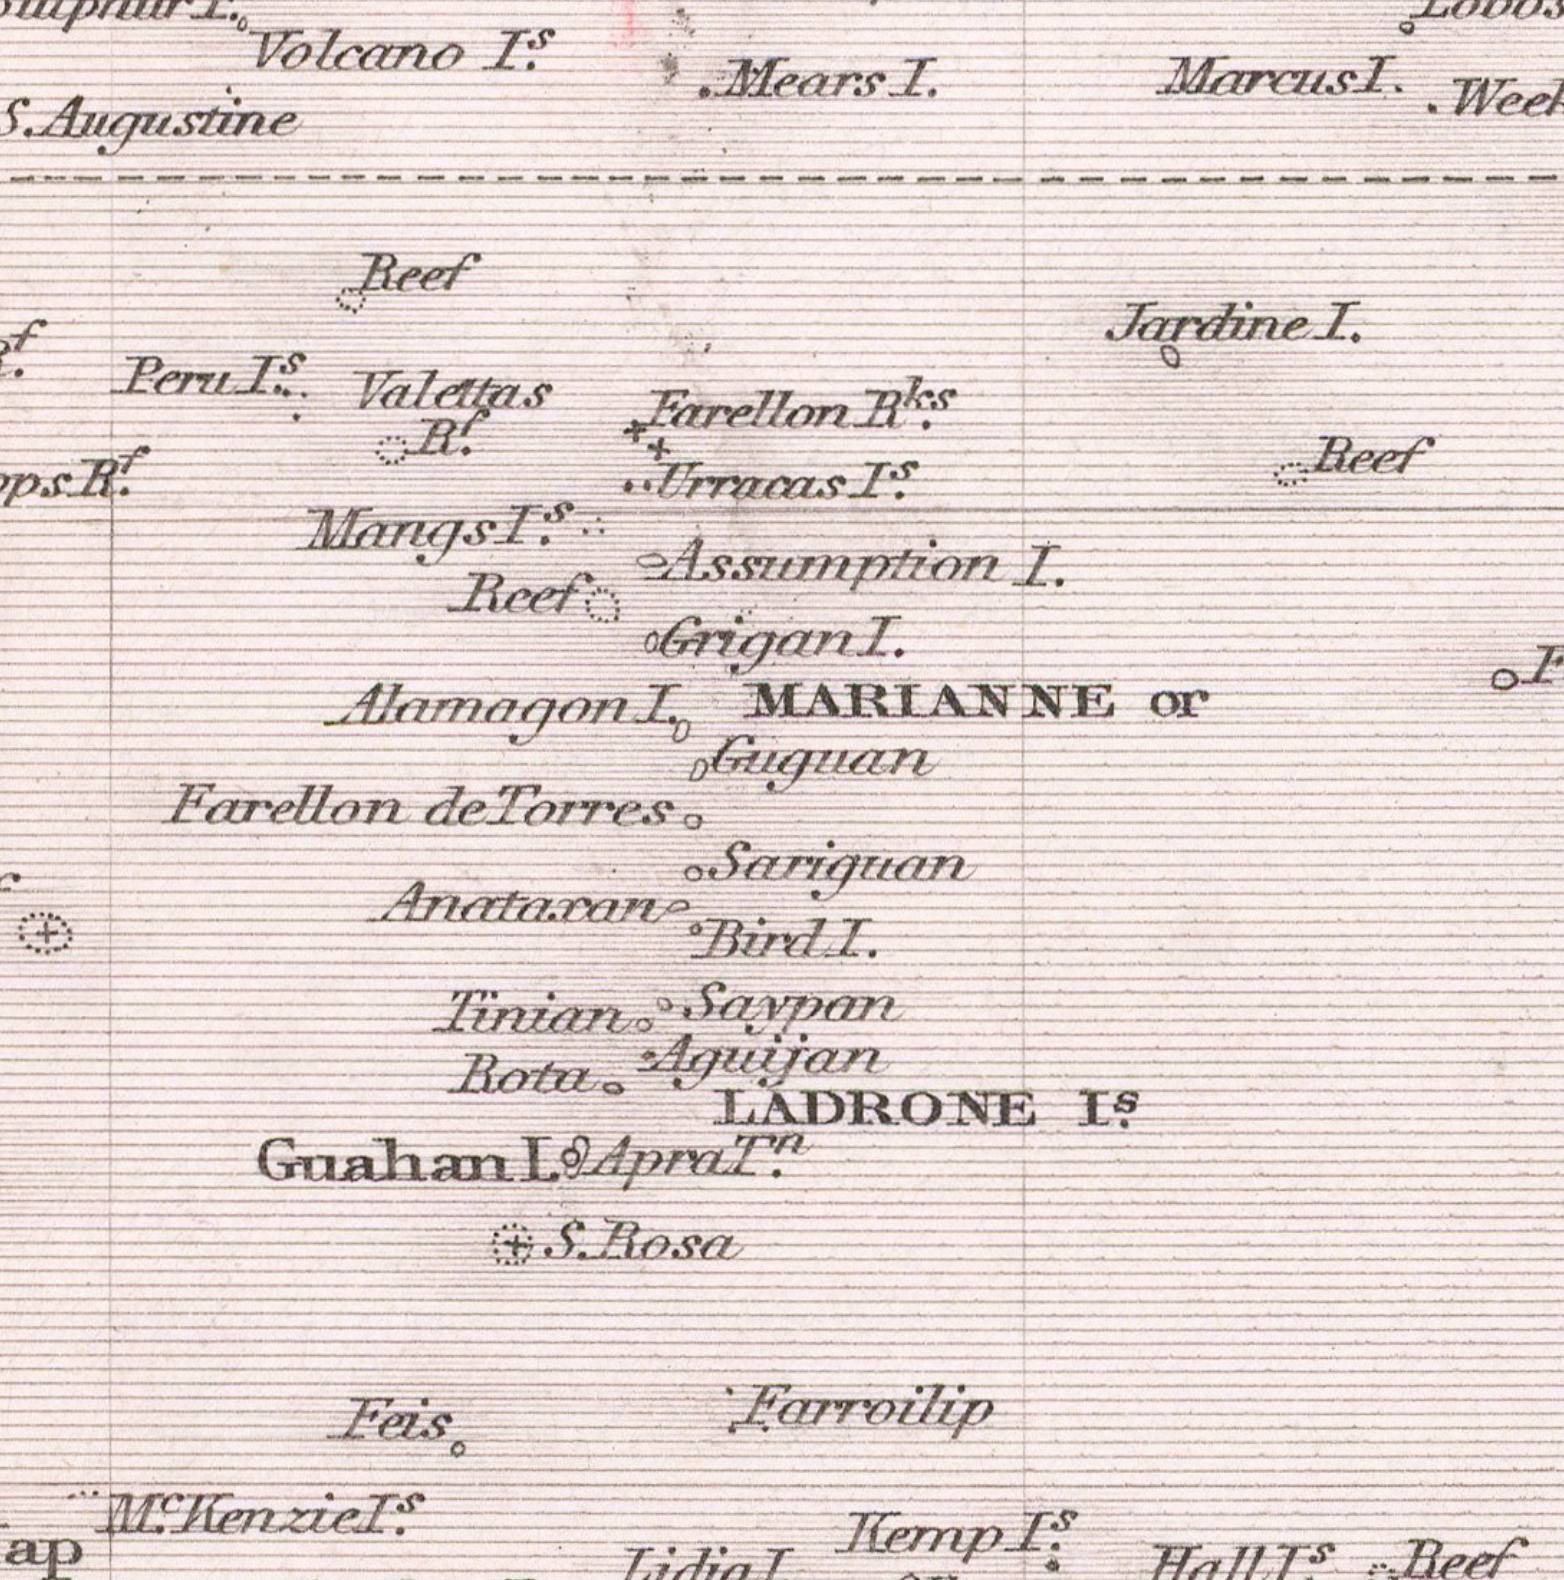 Volcano Is.
Mears I.
Marcus I.
S. Augustine
Reef
Jardine I.
Peru Is.
Valettas
Rf.
Farellon Rks.
Reef
Rf.
Urracas Is.
Mangs Is.
Assumption I.
Reef
Grigan I.
Alamagon I.
MARIANNE or
Guguan
Farellon de Torres
Sariguan
Anataxan
Bird I.
Saypan
Tinian
Aguijan
Rota
LADRONE Is.
Guahan I.
Apra Tn.
S. Rosa
Farroilip
Feis
McKenzie Is.
Kemp Is.
Lidia I.
Hall Is.
Reef